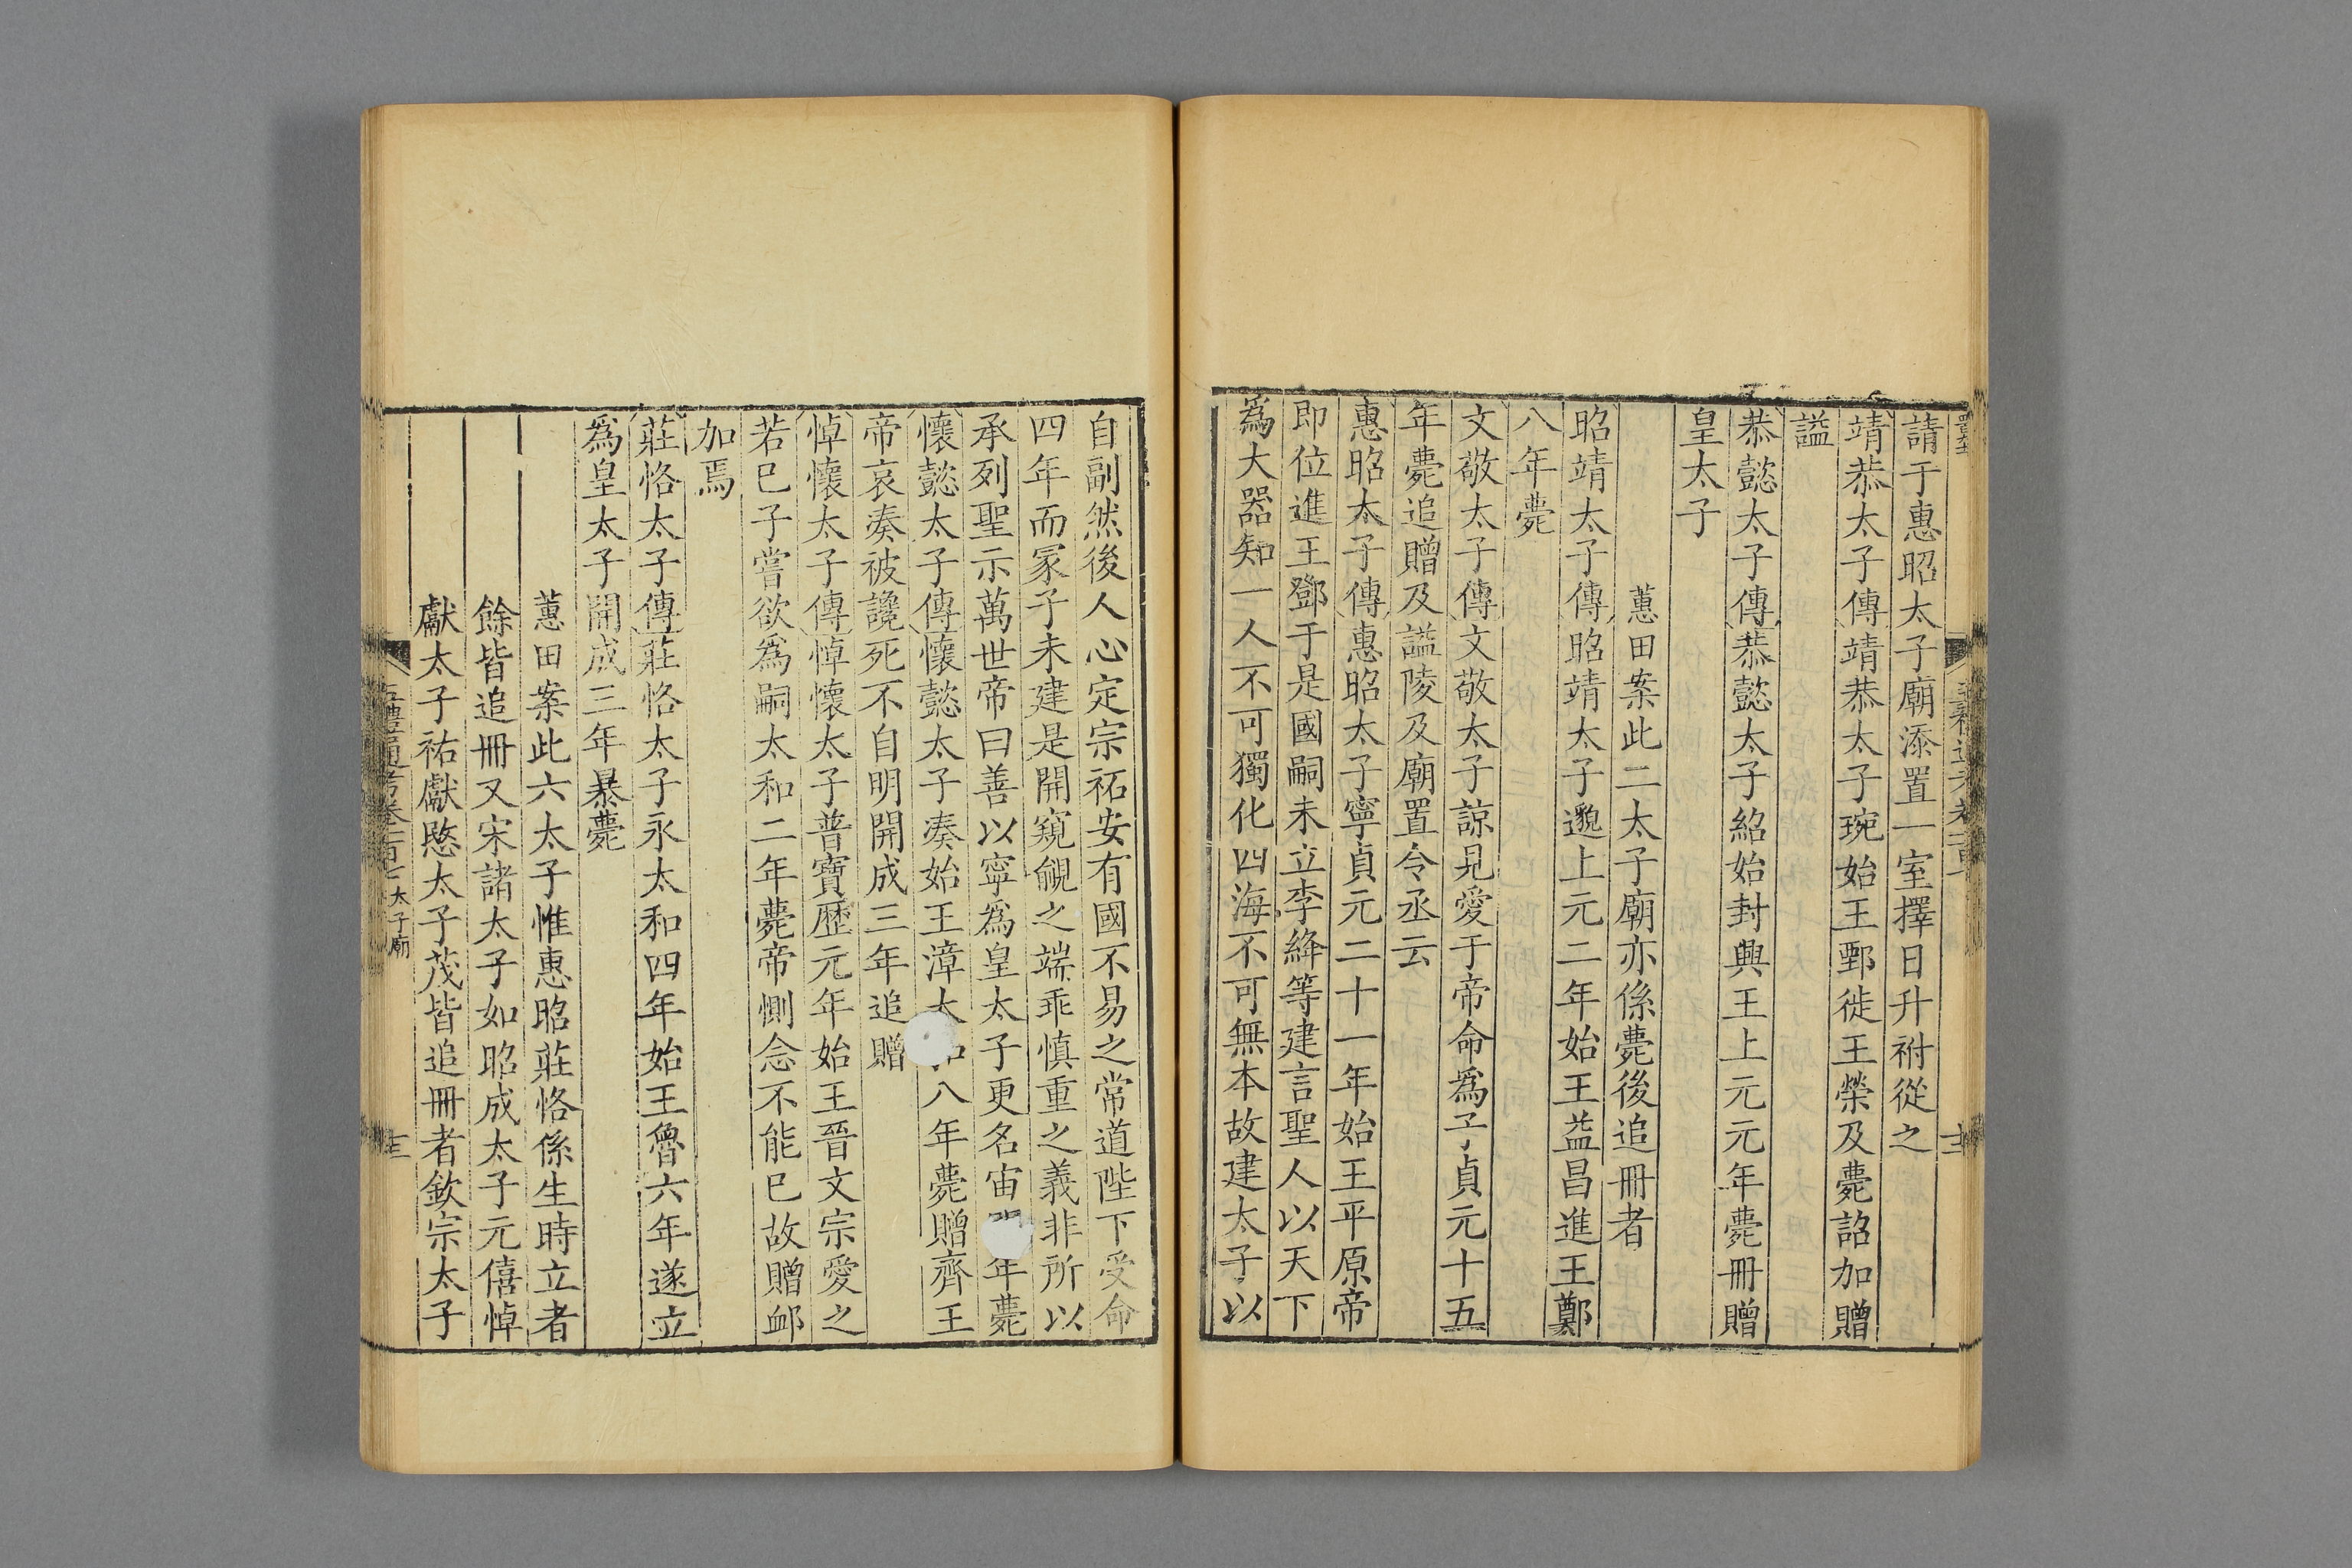 請于惠昭太子廟添置一室擇日升祔從之
靖恭太子傳靖恭太子琬始王鄄徙王榮及薨詔加贈
謚
恭懿太子傳恭懿太子紹始封興王上元元年薨冊贈
皇太子
蕙田案此二太子廟亦係薨後追冊者
昭靖太子傳昭靖太子邈上元二年始王益昌進王鄭
八年薨
文敬太子傳文敬太子諒見愛于帝命爲子貞元十五
年薨追贈及謚陵及廟置令丞云
惠昭太子傳惠昭太子寧貞元二十一年始王平原帝
即位進王鄧于是國嗣未立李絳等建言聖人以天下
爲大器知一人不可獨化四海不可無本故建太子以
自副然後人心定宗祏安有國不易之常道陛下受命
四年而冢子未建是開窺覦之端乖慎重之義非所以
承列聖示萬世帝曰善以寧爲皇太子更名宙年薨
懷懿太子傳懷懿太子湊始王漳八年薨贈齊王
帝哀湊被讒死不自明開成三年追贈
悼懷太子傳悼懷太子普寶歷元年始王晉文宗愛之
若已子嘗欲爲嗣太和二年薨帝惻念不能已故贈卹
加焉
莊恪太子傳莊恪太子永太和四年始王魯六年遂立
爲皇太子開成三年暴薨
蕙田案此六太子惟惠昭莊恪係生時立者
餘皆追冊又宋諸太子如昭成太子元僖悼
獻太子祐獻愍太子茂皆追冊者欽宗太子
五禮通考卷 太子廟 十三